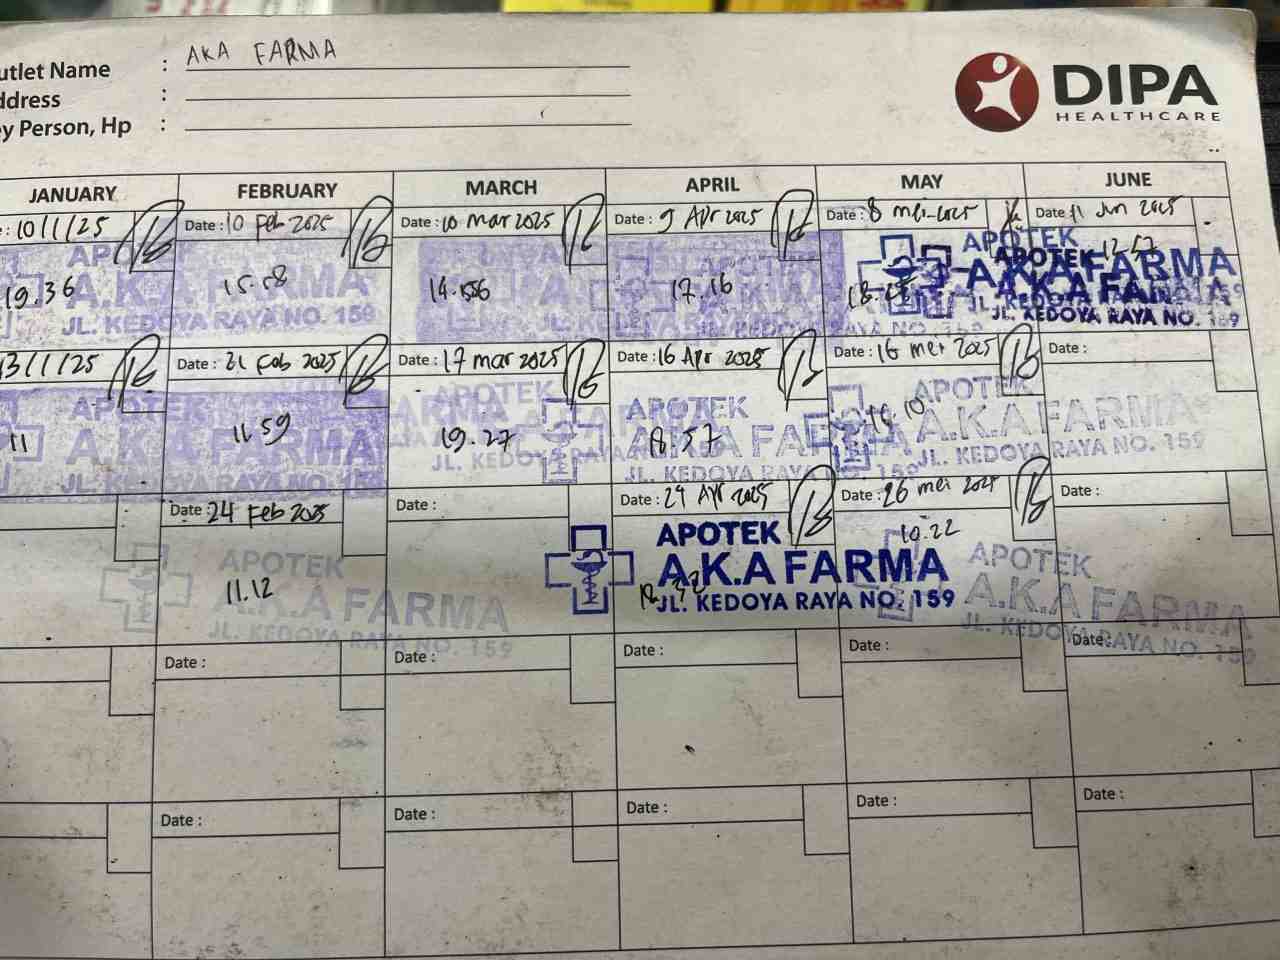 utlet Name : AKA FARMA
ddress :
ey Person, Hp :
DIPA
HEALTHCARE
JANUARY FEBRUARY MARCH APRIL MAY JUNE
: 10/1/25 Date : 10 Feb 2025 Date : 10 mar 2025 Date : 9 Apr 2025 Date : 8 mei 2025 Date : 11 Jun 2025
19.36 15.58 17.16 12.57
A.K.A FARMA
JL. KEDOYA RAYA NO. 159
APOTEK
A.K.A FARMA
JL. KEDOYA RAYA NO. 159
13/1/25 Date : Feb 2025 Date : 17 mar 2025 Date : 16 Apr 2025 Date : 16 mei 2025 Date :
11 11.59 19.27 18.57 10
APOTEK
A.K.A FARMA
JL. KEDOYA RAYA NO. 159
APOTEK
A.K.A FARMA
JL. KEDOYA RAYA NO. 159
Date : 24 Feb 2025 Date : Date : 24 Apr 2025 Date : 26 mei Date :
11.12 10.22
APOTEK
A.K.A FARMA
JL. KEDOYA RAYA NO. 159
APOTEK
A.K.A FARMA
JL. KEDOYA RAYA NO. 159
APOTEK
A.K.A FARMA
JL. KEDOYA RAYA NO. 159
Date : Date : Date : Date : Date :
Date : Date : Date : Date : Date :